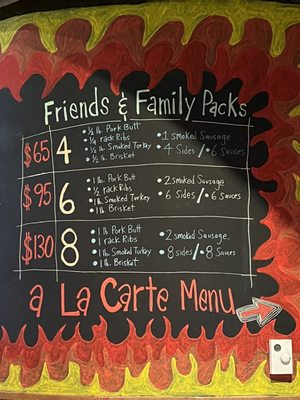 Friends & Family Packs
$65 4
• ½ lb. Pork Butt
• ¼ rack Ribs
• ½ lb. Smoked Turkey
• ½ lb. Brisket
• 1 smoked Sausage
• 4 Sides / • 6 Sauces
$95 6
• 1 lb. Pork Butt
• ½ rack Ribs
• 1 lb. Smoked Turkey
• 1 lb. Brisket
• 2 smoked Sausage
• 6 Sides / • 6 Sauces
$130 8
• 1 lb. Pork Butt
• 1 rack Ribs
• 1 lb. Smoked Turkey
• 1 lb. Brisket
• 2 smoked Sausage.
• 8 sides / • 8 Sauces
a La Carte Menu